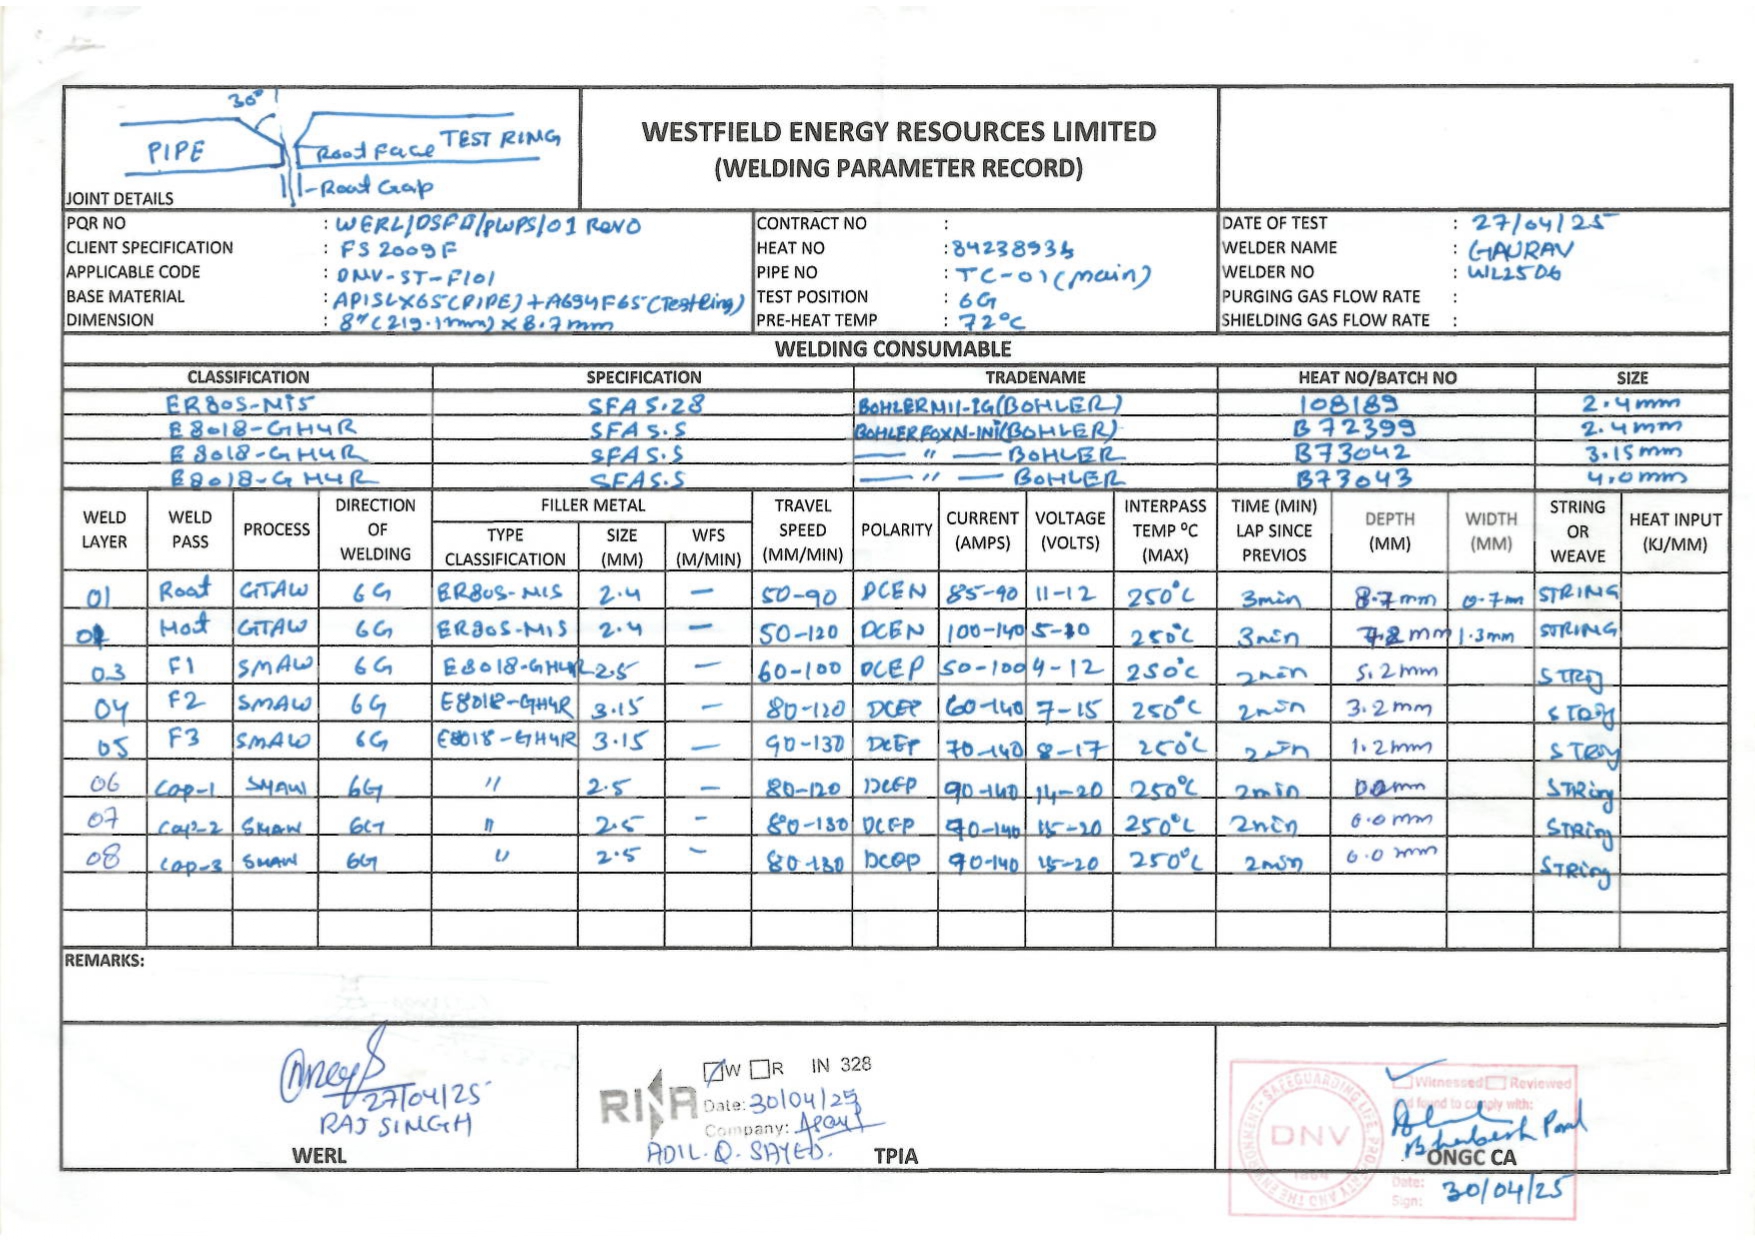 30°
PIPE
Root Face TEST RING
Root Gap
JOINT DETAILS
WESTFIELD ENERGY RESOURCES LIMITED
(WELDING PARAMETER RECORD)
PQR NO : WERL/DSFD/PWPS/01 Rev0 CONTRACT NO : DATE OF TEST : 27/04/25
CLIENT SPECIFICATION : FS 2009F HEAT NO : 84238934 WELDER NAME : GAURAV
APPLICABLE CODE : DNV-ST-F101 PIPE NO : TC-01 (main) WELDER NO : WL2506
BASE MATERIAL : API5LX65(PIPE)+A694F65(TestRing) TEST POSITION : 6G PURGING GAS FLOW RATE :
DIMENSION : 8"(219.1mm) X 8.7mm PRE-HEAT TEMP : 72°C SHIELDING GAS FLOW RATE :
WELDING CONSUMABLE
CLASSIFICATION SPECIFICATION TRADENAME HEAT NO/BATCH NO SIZE
ER80S-Ni5 SFA 5.28 BOHLER Ni1-IG(BOHLER) 108189 2.4mm
E8018-GH4R SFA5.5 BOHLER FOXN-1Ni(BOHLER) B72399 2.4mm
E8018-GH4R SFA5.5 — " — BOHLER B73042 3.15mm
E8018-GH4R SFA5.5 — " — BOHLER B73043 4.0mm
WELD LAYER WELD PASS PROCESS DIRECTION OF WELDING FILLER METAL TYPE CLASSIFICATION SIZE (MM) WFS (M/MIN) TRAVEL SPEED (MM/MIN) POLARITY CURRENT (AMPS) VOLTAGE (VOLTS) INTERPASS TEMP ºC (MAX) TIME (MIN) LAP SINCE PREVIOS DEPTH (MM) WIDTH (MM) STRING OR WEAVE HEAT INPUT (KJ/MM)
01 Root GTAW 6G ER80S-NiS 2.4 — 50-90 DCEN 85-90 11-12 250°C 3min 8.7mm 0.7m STRING
Hot GTAW 6G ER80S-NiS 2.4 — 50-120 DCEN 100-140 250°C 3min 7.2mm 1.3mm STRING
03 F1 SMAW 6G E8018-GH4R 2.5 — 60-100 DCEP 50-100 9-12 250°C 2min 5.2mm STRing
04 F2 SMAW 6G E8018-GH4R 3.15 — 80-120 DCEP 60-140 7-15 250°C 2min 3.2mm STRing
05 F3 SMAW 6G E8018-GH4R 3.15 — 90-130 DCEP 70-140 8-17 250°C 2min 1.2mm STRing
06 Cap-1 SMAW 6G " 2.5 — 80-120 DCEP 90-140 14-20 250°C 2min 0.0mm STRing
07 Cap-2 SMAW 6G " 2.5 — 80-130 DCEP 90-140 15-20 250°C 2min 0.0mm STRing
08 Cap-3 SMAW 6G " 2.5 — 80-130 DCEP 90-140 15-20 250°C 2min 0.0 mm STRing
REMARKS:
27/04/25
RAJ SINGH
WERL
W R IN 328
RINA
Date: 30/04/25
Company:
ADIL. Q. SAYED.
TPIA
Witnessed Reviewed
and found to comply with:
DNV
Bhabesh Paul
ONGC CA
Date:
Sign: 30/04/25